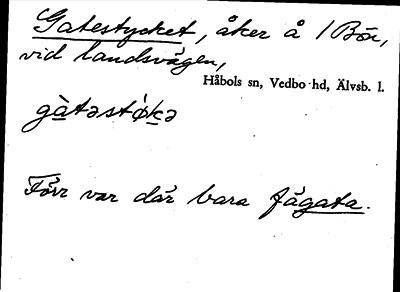 Gatestycket, åker å 1 Bön,
vid landsvägen,
Håbols sn, Vedbo hd, Älvsb. l.
gàtəstýkə
Förr var där bara fägata.